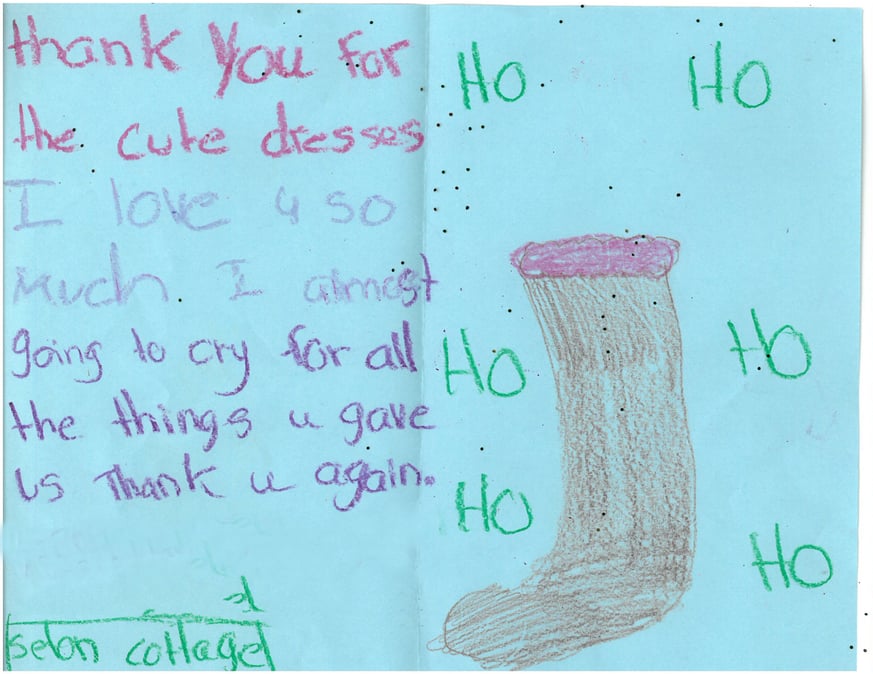 thank you for
the cute dresses
I love u so
much I almost
going to cry for all
the things u gave
us Thank u again.
selon cottage
HO HO
HO HO
HO
HO